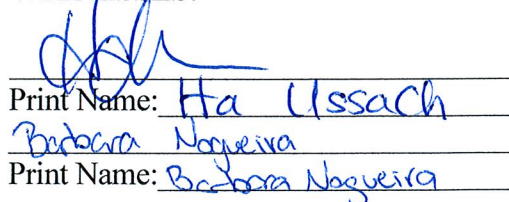 Print Name: Ha Ussach
Barbara Nogueira
Print Name: Barbara Nogueira